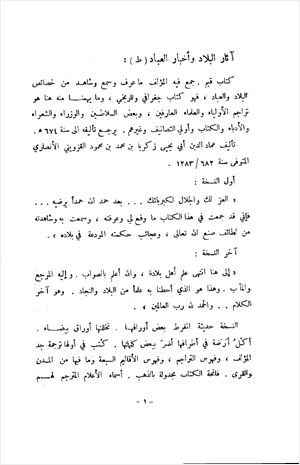 آثار البلاد وأخبار العباد ( ط ) :
كتاب قيم . جمع فيه المؤلف ما عرف وسمع وشاهد من خصائص
البلاد والعباد ، فهو كتاب جغرافي وتاريخي ، وما يهمنا منه هنا هو
تراجم الأولياء والعلماء العارفين ، وبعض السلاطين والوزراء والشعراء
والأدباء والكتاب وأولي التصانيف وغيرهم . يرجع تأليفه الى سنة ٦٧٤ ه .
تأليف عماد الدين أبي يحيى زكريا بن محمد بن محمود القزويني الأنصاري
المتوفى سنة ٦٨٢ / ١٢٨٣ .
أول النسخة :
« العز لك والجلال لكبريائك ... بعد حمد الله حمداً يرضيه ...
فإني قد جمعت في هذا الكتاب ما وقع لي وعرفته ، وسمعت به وشاهدته
من لطائف صنع الله تعالى ، وعجائب حكمته المودعة في بلاده » .
آخر النسخة :
« إلى هنا انتهى علم أهل بلادنا ، والله أعلم بالصواب . وإليه المرجع
والمآب . وهذا هو الذي أحطنا به علماً من البلاد والنجاد . وهو آخر
الكلام ... والحمد لله رب العالمين » .
النسخة حديثة انفرط بعض أوراقها . تخللتها أوراق بيضاء .
أكلُ أرَضة في أطرافها أضرّ ببعض كلماتها . كُتب في أولها ترجمة جد
المؤلف ، وفهرس التراجيم ، وفهرس الأقاليم السبعة وما فيها من المدن
والقرى . فاتحة الكتاب مجدولة بالذهب . أسماء الأعلام المترجم لهم
- ١ -